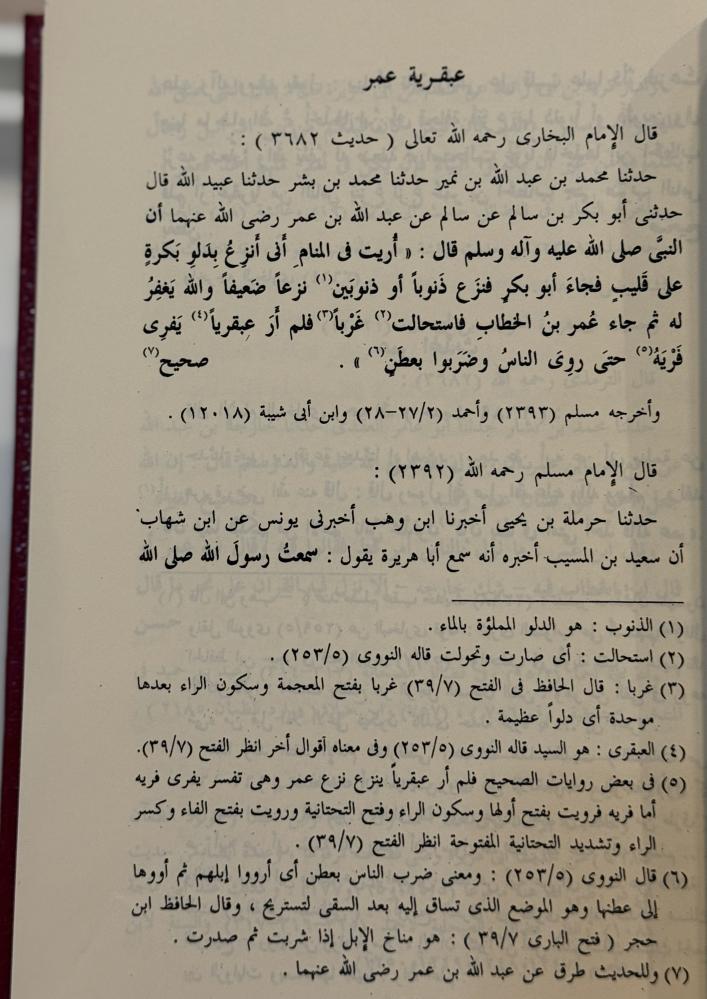 عبقرية عمر
قال الإمام البخارى رحمه الله تعالى ( حديث ٣٦٨٢ ) :
حدثنا محمد بن عبد الله بن نمير حدثنا محمد بن بشر حدثنا عبيد الله قال
حدثنى أبو بكر بن سالم عن سالم عن عبد الله بن عمر رضى الله عنهما أن
النبىَّ صلى الله عليه وآله وسلم قال : « أُريت فى المنام أَنى أَنزِعُ بِدَلوِ بَكرةٍ
على قَليبٍ فجاءَ أبو بكرٍ فنزَع ذَنوباً أو ذنوبَين(١) نزعاً ضَعيفاً والله يَغفِرُ
له ثم جاء عُمر بنُ الخطاب فاستحالت(٢) غَرْباً(٣) فلم أَرَ عبقرياً(٤) يَفرِى
فَرْيَهُ(٥) حتىَ روِىَ الناسُ وضَرَبوا بعطَنٍ(٦) » . صحيح(٧)
وأخرجه مسلم (٢٣٩٣) وأحمد (٢/٢٧–٢٨) وابن أبى شيبة (١٢٠١٨) .
قال الإمام مسلم رحمه الله (٢٣٩٢) :
حدثنا حرملة بن يحيى أخبرنا ابن وهب أخبرنى يونس عن ابن شهاب
أن سعيد بن المسيب أخبره أنه سمع أبا هريرة يقول : سمعتُ رسولَ الله صلى الله
(١) الذنوب : هو الدلو المملؤة بالماء .
(٢) استحالت : أى صارت وتحولت قاله النووى (٢٥٣/٥) .
(٣) غربا : قال الحافظ فى الفتح (٣٩/٧) غربا بفتح المعجمة وسكون الراء بعدها
موحدة أى دلواً عظيمة .
(٤) العبقرى : هو السيد قاله النووى (٢٥٣/٥) وفى معناه أقوال أخر انظر الفتح (٣٩/٧).
(٥) فى بعض روايات الصحيح فلم أر عبقرياً ينزع نزع عمر وهى تفسر يفرى فريه
أما فريه فرويت بفتح أولها وسكون الراء وفتح التحتانية ورويت بفتح الفاء وكسر
الراء وتشديد التحتانية المفتوحة انظر الفتح (٣٩/٧) .
(٦) قال النووى (٢٥٣/٥) : ومعنى ضرب الناس بعطن أى أرووا إبلهم ثم أووها
إلى عطنها وهو الموضع الذى تساق إليه بعد السقى لتستريح ، وقال الحافظ ابن
حجر ( فتح البارى ٣٩/٧ ) : هو مناخ الإبل إذا شربت ثم صدرت .
(٧) وللحديث طرق عن عبد الله بن عمر رضى الله عنهما .